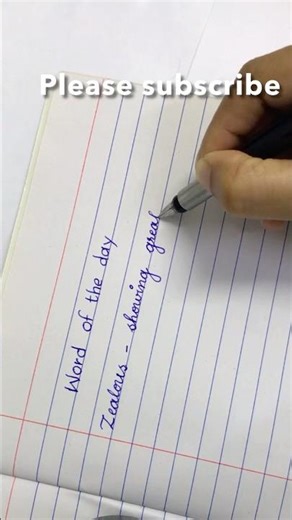 Please subscribe
Word of the day
Zealous - showing great